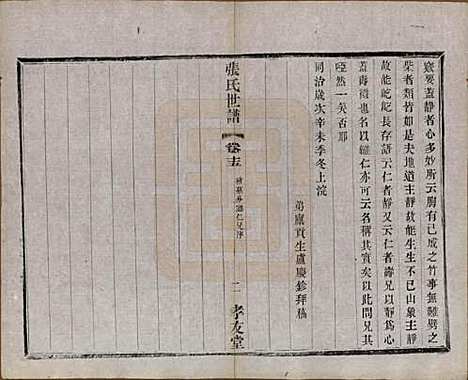 窾要蓋靜者心多妙所云胸有已成之竹事無難劈之
柴者類竹如是夫地道主靜故能生生不已山象主靜
故能屹屹長存語云仁者靜又云仁者壽兄以靜為心
蓋壽徵也名以繼仁亦可云名稱其實矣以此問兄其
啞然一笑否耶
同治歲次辛未季冬上浣
弟廩貢生盧慶鉁拜稿
張氏世譜
卷十五
仁兄序
二
孝友堂